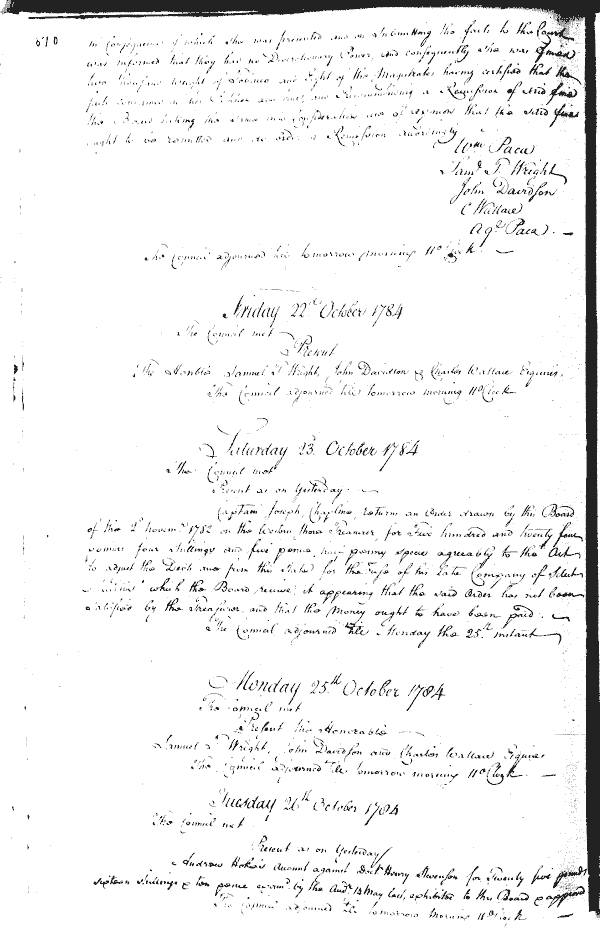 610
in Consequence of which She was presented and on Submitting the facts to the Court
was informed that they had no Discretionary Power, and consequently She was fined
two thousand weight of Tobacco and Eight of the Magistrates having certified that the
facts contained in her Petition are and Recommending a Remission of said fine
the Board taking the same into Consideration are of opinion that the said fine
ought to be remitted and do order a Remission accordingly
Wm Paca
Saml T. Wright
John Davidson
C Wallace
Aqa Paca.
The Council adjourned till tomorrow morning 11 oClock.
Friday 22nd October 1784
The Council met
Present
The Honble Samuel T Wright, John Davidson & Charles Wallace Esquires.
The Council adjourned till tomorrow morning 11 oClock
Saturday 23. October 1784
The Council met
Present as on Yesterday.
Captain Joseph Chapline return an Order drawn by this Board
of the 2d Novemr 1782 on the Western Shore Treasurer for Five hundred and twenty four
pounds four Shillings and five pence, half penny specie agreably to the Act
to adjust the Debts due from this State for the use of his Late Company of Select
Militia which the Board receive, it appearing that the said Order has not been
satisfied by the Treasurer and that the Money ought to have been paid.
The Council adjourned till Monday the 25th instant
Monday 25th October 1784
The Council met
Present the Honorable
Samuel T Wright, John Davidson and Charles Wallace Esquires
The Council adjourned till tomorrow morning 11 oClock.
Tuesday 26th October 1784
The Council met
Present as on Yesterday
Andrew Hoke's Account against Doctr Henry Stevenson for Twenty five pounds
sixteen shillings & ten pence by the Audr 14 May last, exhibited to the Board & approved
The Council adjourned till tomorrow morning 11 oClock